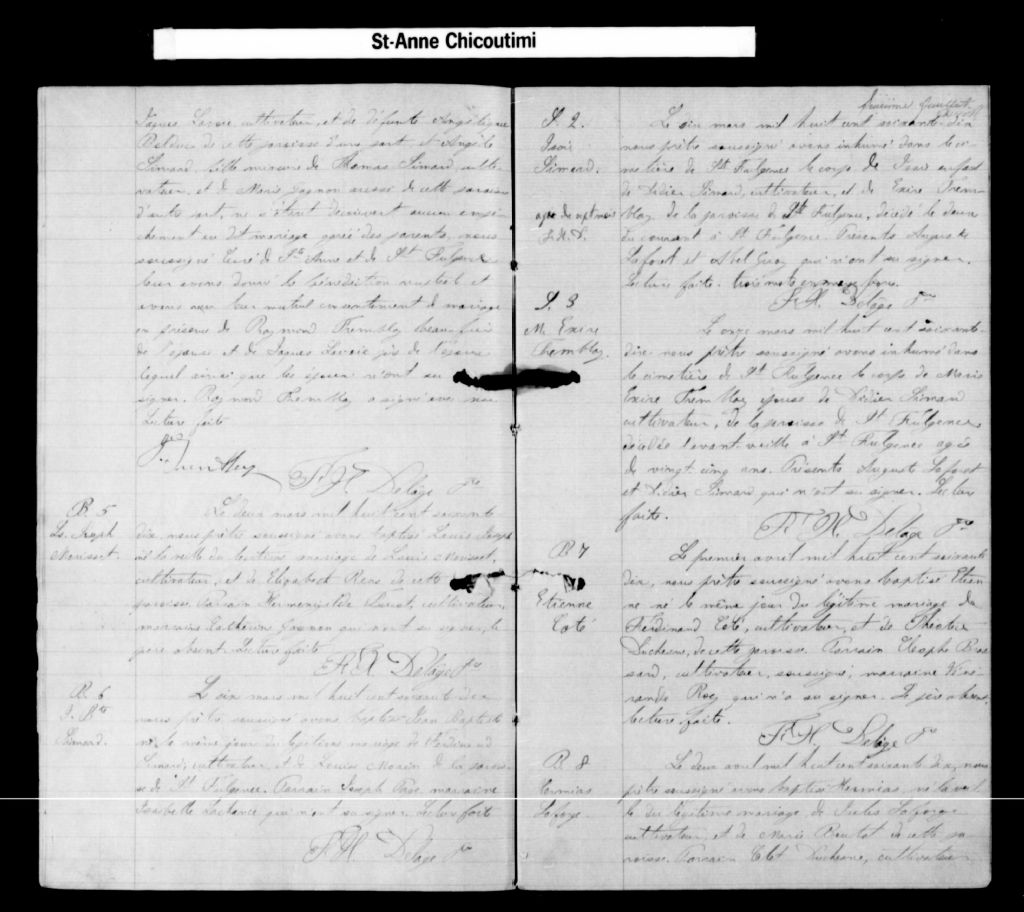 St-Anne Chicoutimi
Jaques Lavoie cultivateur, et de défunte Angélique
de cette paroisse d'une part, et Angèle
Simard, fille mineure de Thomas Simard, culti-
vateur, et de Marie Gagnon aussi de cette paroisse
d'autre part, ne s'étant découvert aucun empê-
chement au dit mariage parié des parents, nous
soussigné Curé de Ste Anne et de St Fulgence
leur avons donné la bénédiction nuptiale et
avons reçu leur mutuel consentement de mariage
en présence de Raymond Tremblay beau-frère
de l'épouse et de Jaques Lavoie père de l'époux
lequel ainsi que les époux n'ont su
signer. Raymond Tremblay a signé avec nous
Lecture faite
Tremblay
F. H. Delâge Ptre
B. 5
Ls. Joseph
Morisset.
Le deux mars mil huit cent soixante
dix, nous prêtre soussigné avons baptisé Louis Joseph
né la veille du légitime mariage de Louis Morisset,
cultivateur, et de Elizabeth de cette
paroisse. Parrain Herménegilde cultivateur,
marraine Catherine Gagnon qui n'ont su signer, le
père absent. Lecture faite
F. H. Delâge Ptre
B. 6
J. Bte
Simard.
Le six mars mil huit cent soixante dix
nous prêtre soussigné avons baptisé Jean Baptiste
né le même jour du légitime mariage de Ferdinand
Simard, cultivateur, et de Louise Morin de la parois-
se de St Fulgence. Parrain Joseph marraine
qui n'ont su signer. Lecture faite
F. H. Delâge Ptre
feuillet
S. 2.
Simard.
agé de sept mois
Le six mars mil huit cent soixante-dix
nous prêtre soussigné avons inhumé dans le ci-
metière de St Fulgence le corps de enfant
de Didier Simard, cultivateur, et de Exire Trem-
blay de la paroisse de St Fulgence, décédé le deux
du courant à St Fulgence. Présents Auguste
Laforet et Abel qui n'ont su signer.
Lecture faite.
F. H. Delâge Ptre
S. 3
M. Exire
Tremblay.
Le onze mars mil huit cent soixante-
dix nous prêtre soussigné avons inhumé dans
le cimetière de St Fulgence le corps de Marie
Exire Tremblay épouse de Didier Simard
cultivateur, de la paroisse de St Fulgence,
décédée l'avant-veille à St Fulgence agée
de vingt-cinq ans. Présents Auguste Laforet
et Didier Simard qui n'ont su signer. Lecture
faite.
F. H. Delâge Ptre
B. 7
Etienne
Coté
Le premier avril mil huit cent soixante
dix, nous prêtre soussigné avons baptisé Etien-
ne né le même jour du légitime mariage de
Ferdinand Coté, cultivateur, et de
Duchesne, de cette paroisse. Parrain
cultivateur, soussigné, marraine
qui n'a su signer. Le père absent.
Lecture faite.
F. H. Delâge Ptre
B. 8
Ermias
Laforge.
Le deux avril mil huit cent soixante dix, nous
prêtre soussigné avons baptisé Hermias, né la veil-
le du légitime mariage de Jules Laforge
cultivateur, et de Marie de cette pa-
roisse. Parrain Duchesne, cultivateur